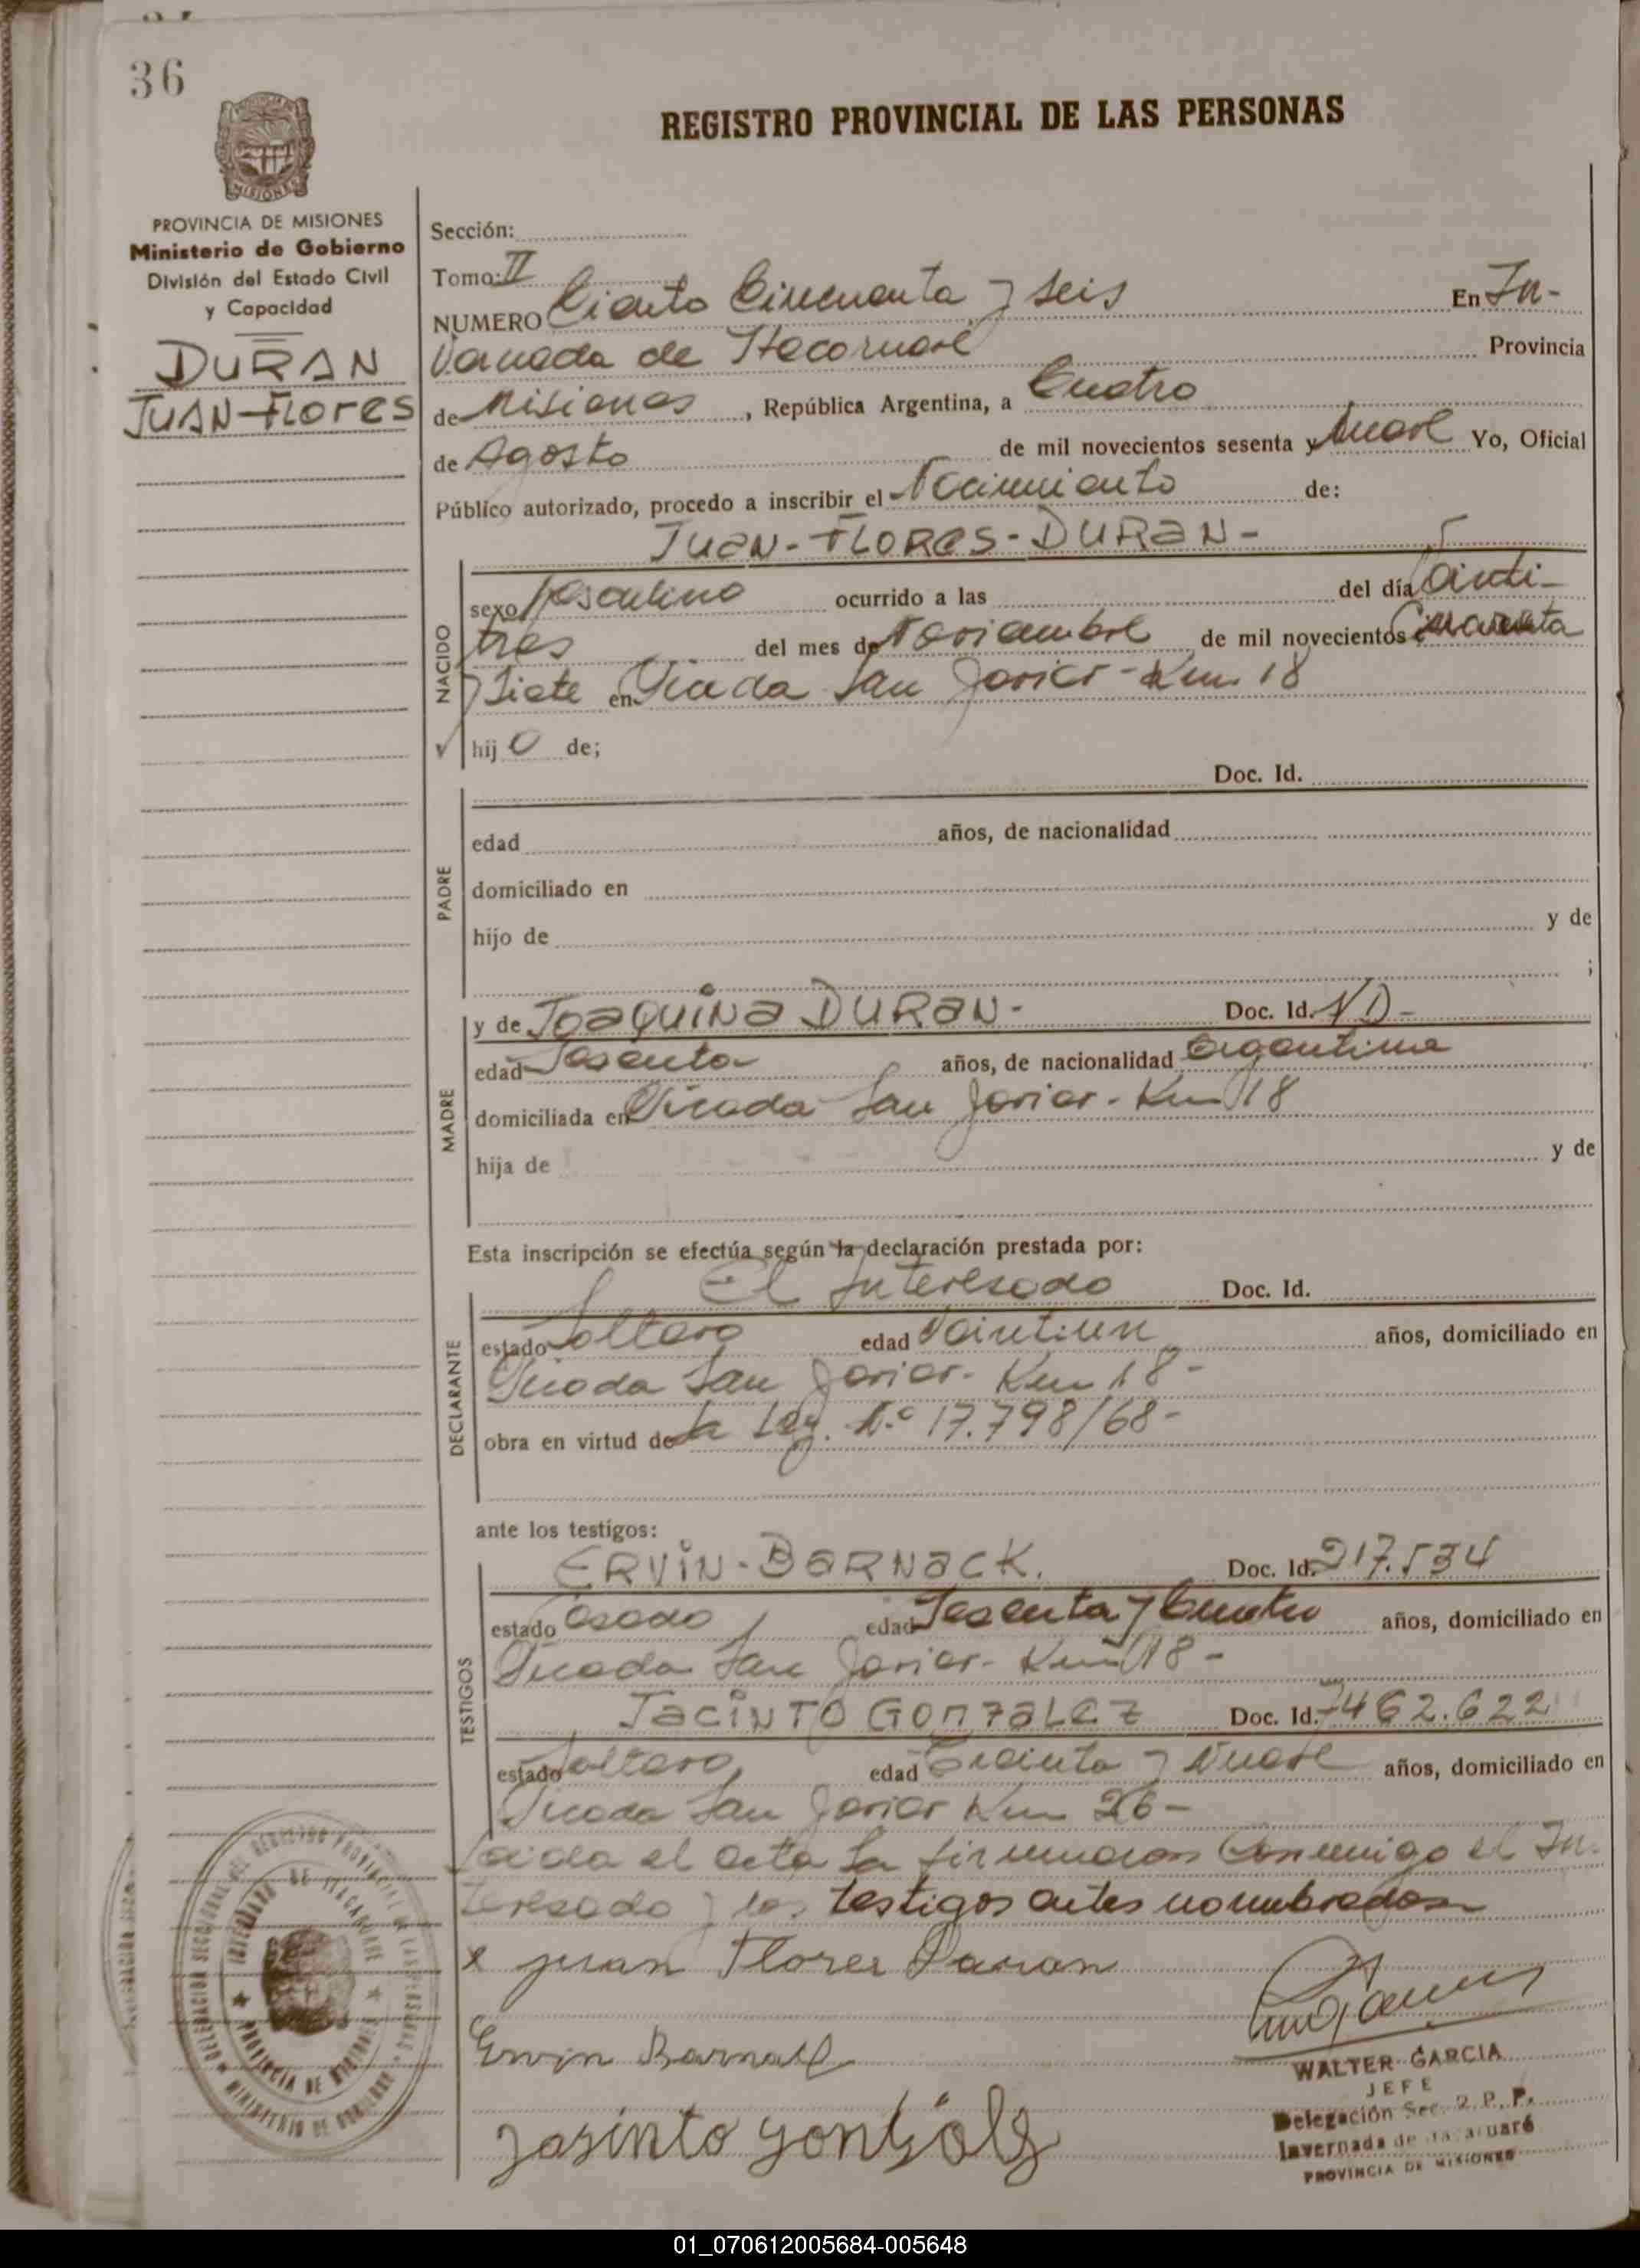 36
REGISTRO PROVINCIAL DE LAS PERSONAS
MISIONES
PROVINCIA DE MISIONES
Ministerio de Gobierno
División del Estado Civil
y Capacidad
DURAN
JUAN-FLores
Sección:
Tomo: II
NUMERO Ciento Cincuenta y seis En In-
vernada de Itacaruare Provincia
de Misiones, República Argentina, a Cuatro
de Agosto de mil novecientos sesenta y nueve Yo, Oficial
Público autorizado, procedo a inscribir el Nacimiento de:
JUAN-FLORES-DURAN-
NACIDO
sexo Masculino ocurrido a las del día Veinti-
tres del mes de Noviembre de mil novecientos Cuarenta
y Siete en Picada San Javier-Km 18
hijo de;
PADRE
Doc. Id.
edad años, de nacionalidad
domiciliado en
hijo de y de
;
MADRE
y de JOAQUINA DURAN- Doc. Id. ND-
edad Sesenta años, de nacionalidad Argentina
domiciliada en Picada San Javier-Km 18
hija de y de
Esta inscripción se efectúa según la declaración prestada por:
DECLARANTE
El Interesado Doc. Id.
estado Soltero edad Veintiun años, domiciliado en
Picada San Javier-Km 18-
obra en virtud de la Ley. N.º 17.798/68-
ante los testigos:
TESTIGOS
ERVIN-BARNACK. Doc. Id. 217.534
estado Casado edad Sesenta y Cuatro años, domiciliado en
Picada San Javier-Km 18-
JACINTO GONZALEZ Doc. Id. 7462.622
estado Soltero, edad Treinta y Nueve años, domiciliado en
Picada San Javier Km 26-
Leida el acta la firmaron Conmigo el In-
teresado y los testigos antes nombrados
x juan Flores Duran
Ervin Barnack
Jasinto gonsalz
WALTER GARCIA
JEFE
Delegación Sec. R. P. P.
Invernada de Itacaruaré
PROVINCIA DE MISIONES
01_070612005684-005648